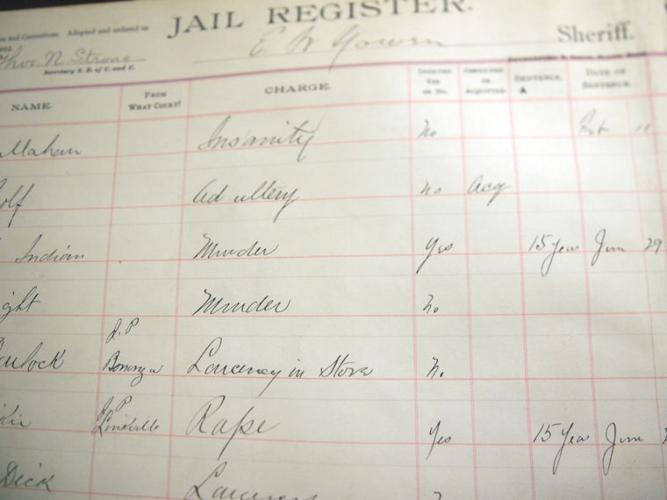 JAIL REGISTER.
and Corrections. Adopted and ordered to
Thos. N. Strong
Secretary S. B. of C. and C.
E W Sheriff.
NAME. FROM WHAT COURT? CHARGE. INDICTED YES OR NO. CONVICTED OR ACQUITTED. SENTENCE. DATE OF SENTENCE.
Mahan Insanity No
olf Adultery no Acq
Indian Murder Yes 15 Years June 29
ight Murder No
J. P
Larceny in Store N.
J P
Rape Yes 15 Years June
Dick Larceny